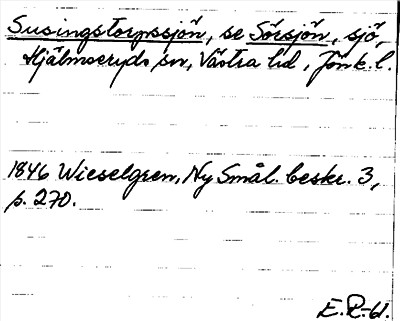 Susingstorpssjön, se Sörsjön, sjö,
Hjälmseryds sn, Västra hd, Jönk. l.
1846 Wieselgren, Ny Smål. beskr. 3,
p. 270.
E.R-61.